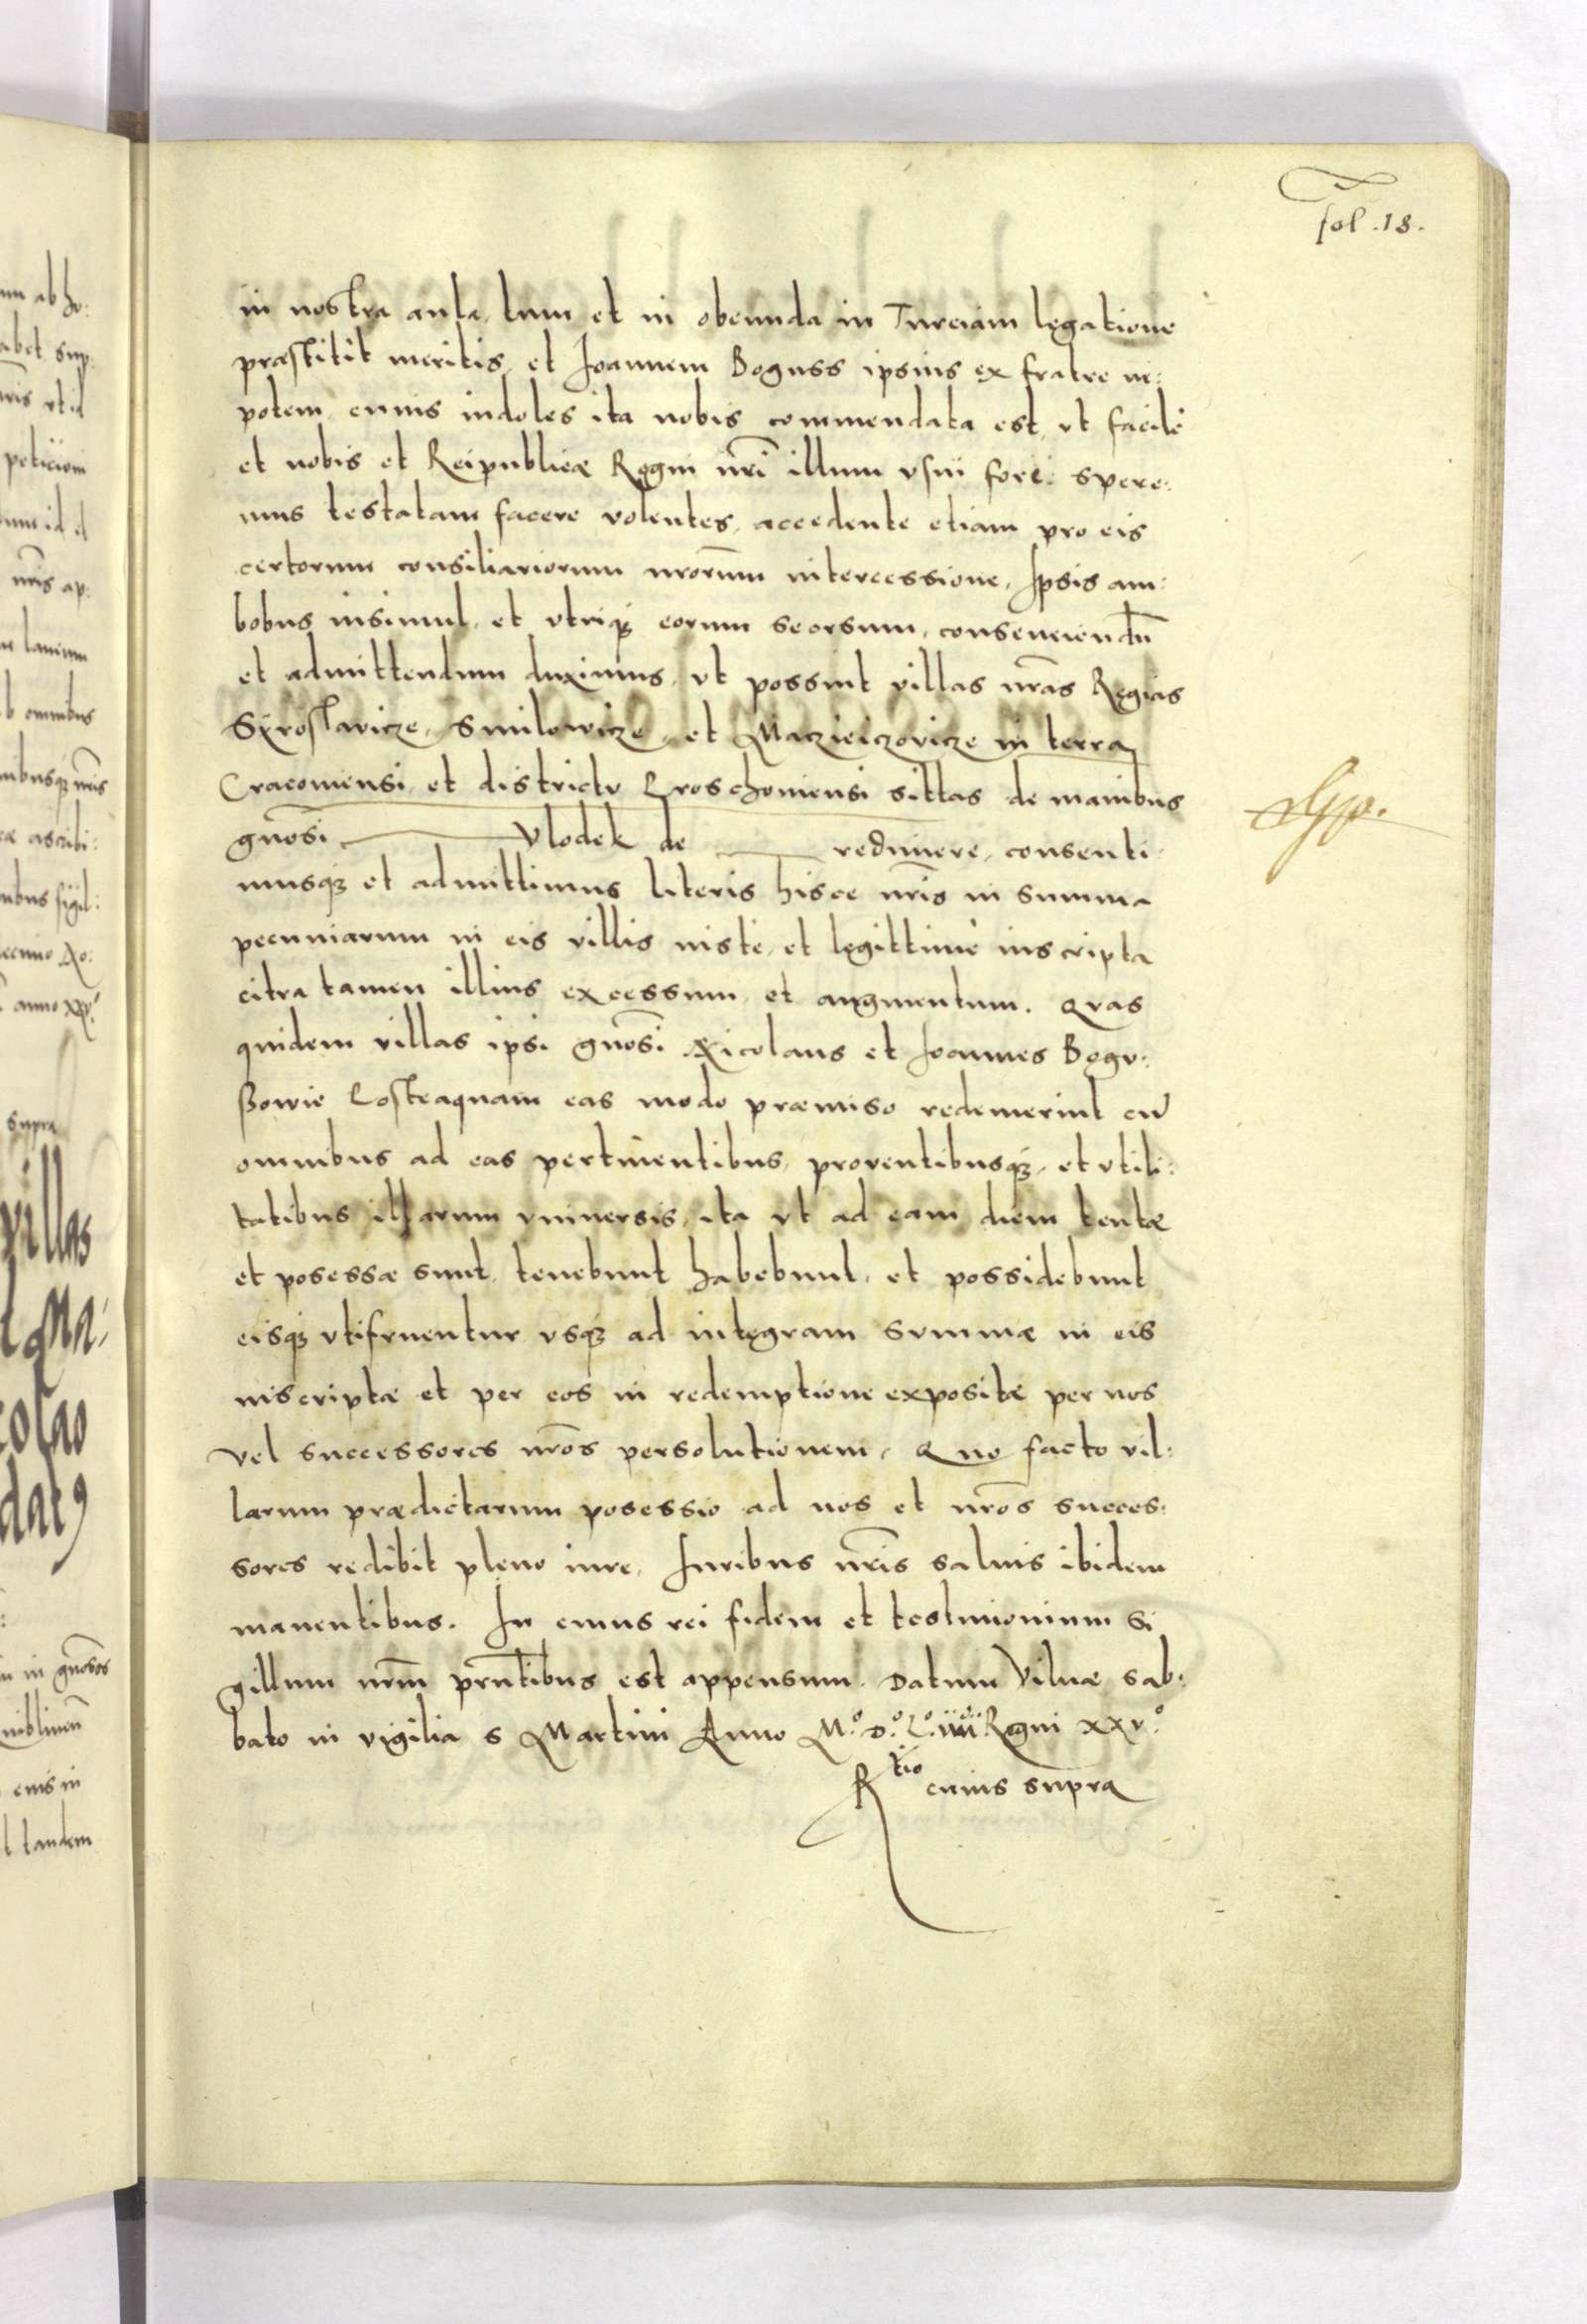 fol. 18.
in nostra aula, tum et in obeunda in Turciam legatione
præstitit meritis, et Joannem Boguss ipsius ex fratre ne:
potem, cuius indoles ita nobis commendata est, vt facilè
et nobis et Reipublicæ Regni nrī illum vsui fore spere:
mus testatam facere volentes, accedente etiam pro eis
certorum consiliariorum nrorūm intercessione, Ipsis am:
bobus insimul, et vtriq; eorum seorsum, consenciendū
et admittendum duximus, vt possint villas nrās Regias
Siroslavicze, Smilowicze, et Maczieiczovicze in terra
Cracouiensi, et districtu Proschoviensi sittas de manibus
gnōsi Vlodek de redimere, consenti:
musq; et admittimus literis hisce nrīs in summa
pecuniarum in eis villis iuste, et legittime inscripta
citra tamen illius excessum, et augmentum. Quas
quidem villas ipsi gnōsi Nicolaus et Joannes Bogu:
ssowie Posteaquam eas modo præmiso redemerint cū
omnibus ad eas pertinentibus, proventibusq;, et vtili:
tatibus illarum vniuersis, ita vt ad eam diem tentæ
et posessæ sunt, tenebunt habebunt, et possidebunt
eisq; vtifruentur vsq; ad integram summæ in eis
inscriptæ et per eos in redemptione expositæ per nos
vel successores nrōs persolutionem, Quo facto vil:
larum prædictarum posessio ad nos et nrōs succes:
sores redibit pleno iure, Iuribus nrīs saluis ibidem
manentibus. In cuius rei fidem et testimonium Si
gillum nrm̄ prn̄tibus est appensum. Datum Vilnæ Sab:
bato in vigilia S Martini Anno M.° D.° L.° iiii° Regni xxv.°
Rtio cuius supra